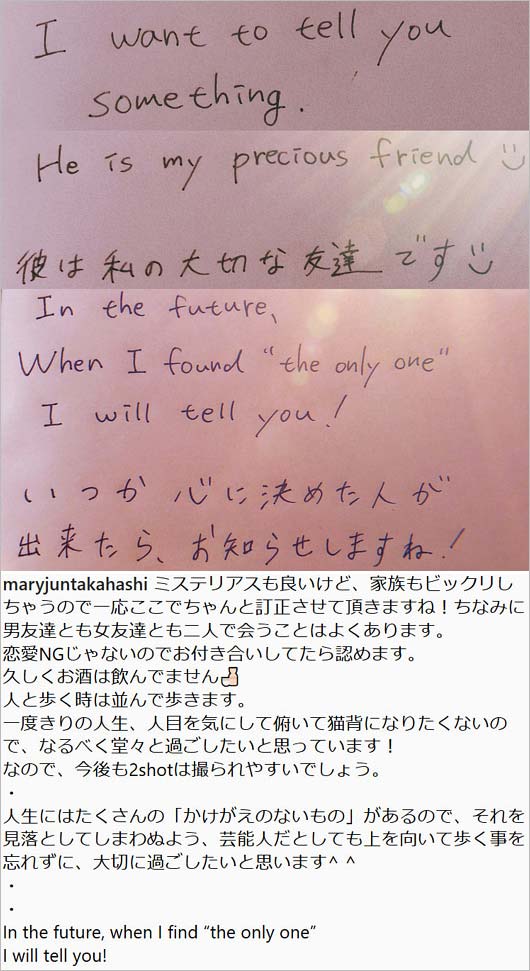 I want to tell you
something.
He is my precious friend
彼は私の大切な友達です
In the future,
When I found "the only one"
I will tell you!
いつか心に決めた人が
出来たら、お知らせしますね!
maryjuntakahashi ミステリアスも良いけど、家族もビックリし
ちゃうので一応ここでちゃんと訂正させて頂きますね！ちなみに
男友達とも女友達とも二人で会うことはよくあります。
恋愛NGじゃないのでお付き合いしてたら認めます。
久しくお酒は飲んでません🍶
人と歩く時は並んで歩きます。
一度きりの人生、人目を気にして俯いて猫背になりたくないの
で、なるべく堂々と過ごしたいと思っています！
なので、今後も2shotは撮られやすいでしょう。
・
人生にはたくさんの「かけがえのないもの」があるので、それを
見落としてしまわぬよう、芸能人だとしても上を向いて歩く事を
忘れずに、大切に過ごしたいと思います^ ^
・
・
In the future, when I find “the only one”
I will tell you!